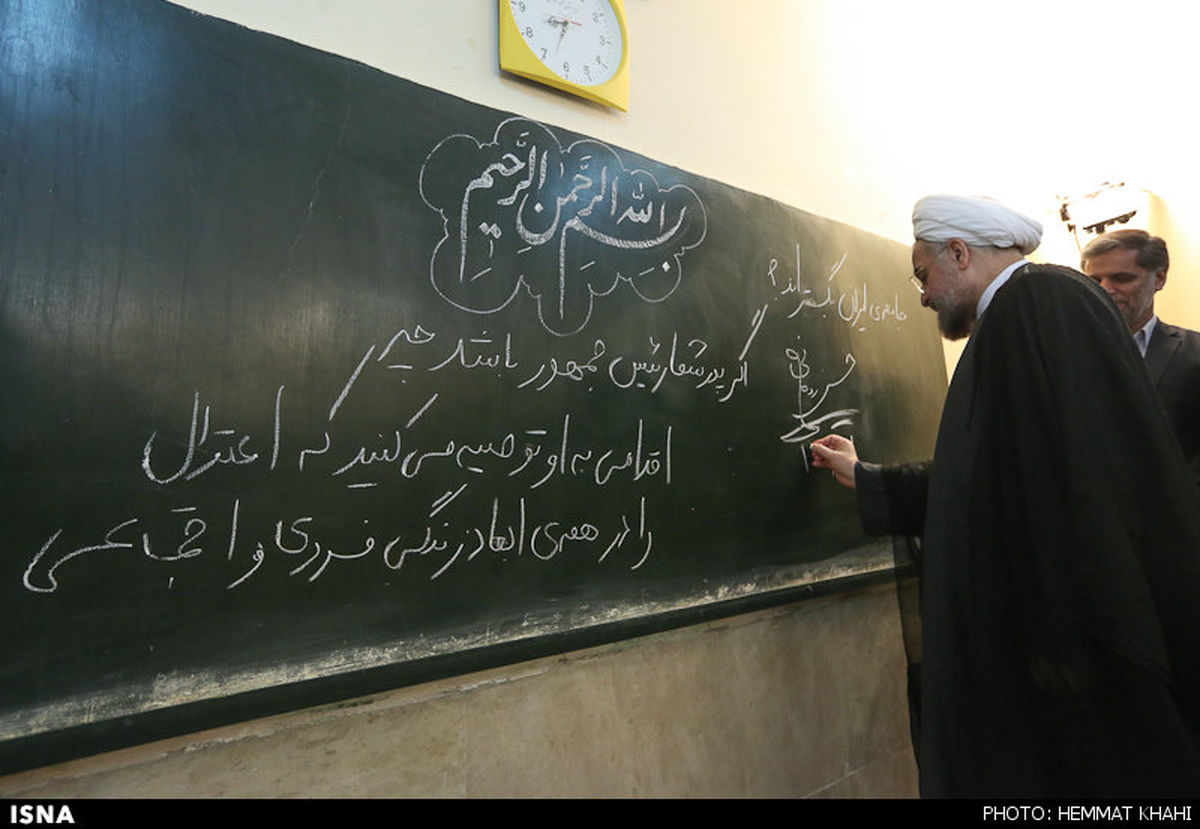 بسم الله الرحمن الرحیم
اگر پدر شما رئیس جمهور باشد چه
اقدامی به او توصیه می کنید که اعتدال
را در همه‌ی ابعاد زندگی فردی و اجتماعی
جامعه‌ی ایران بگستراند؟
حسن روحانی
ISNA
PHOTO: HEMMAT KHAHI